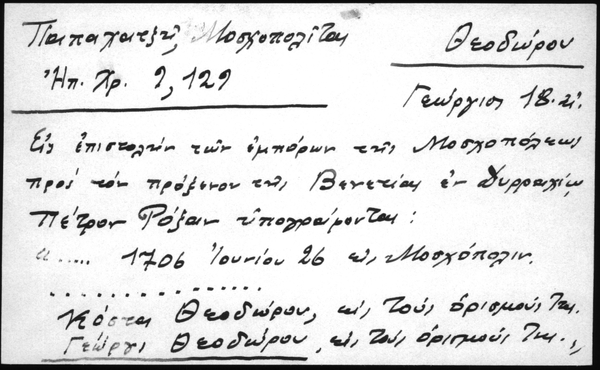 Παπαχατζῆ, Μοσχοπολῖται
Θεοδώρου
Ἠπ. Χρ. 9, 129
Γεώργιος 18. αἰ.
Εἰς ἐπιστολὴν τῶν ἐμπόρων τῆς Μοσχοπόλεως
πρὸς τὸν πρόξενον τῆς Βενετίας ἐν Δυρραχίῳ
Πέτρον Ρόζαν ὑπογράφονται:
«..... 1706 Ἰουνίου 26 εἰς Μοσχόπολιν.
................
Κόστα Θεοδώρου, εἰς τοὺς ὁρισμούς της.
Γεώργι Θεοδώρου, εἰς τοὺς ὁρισμούς της.»